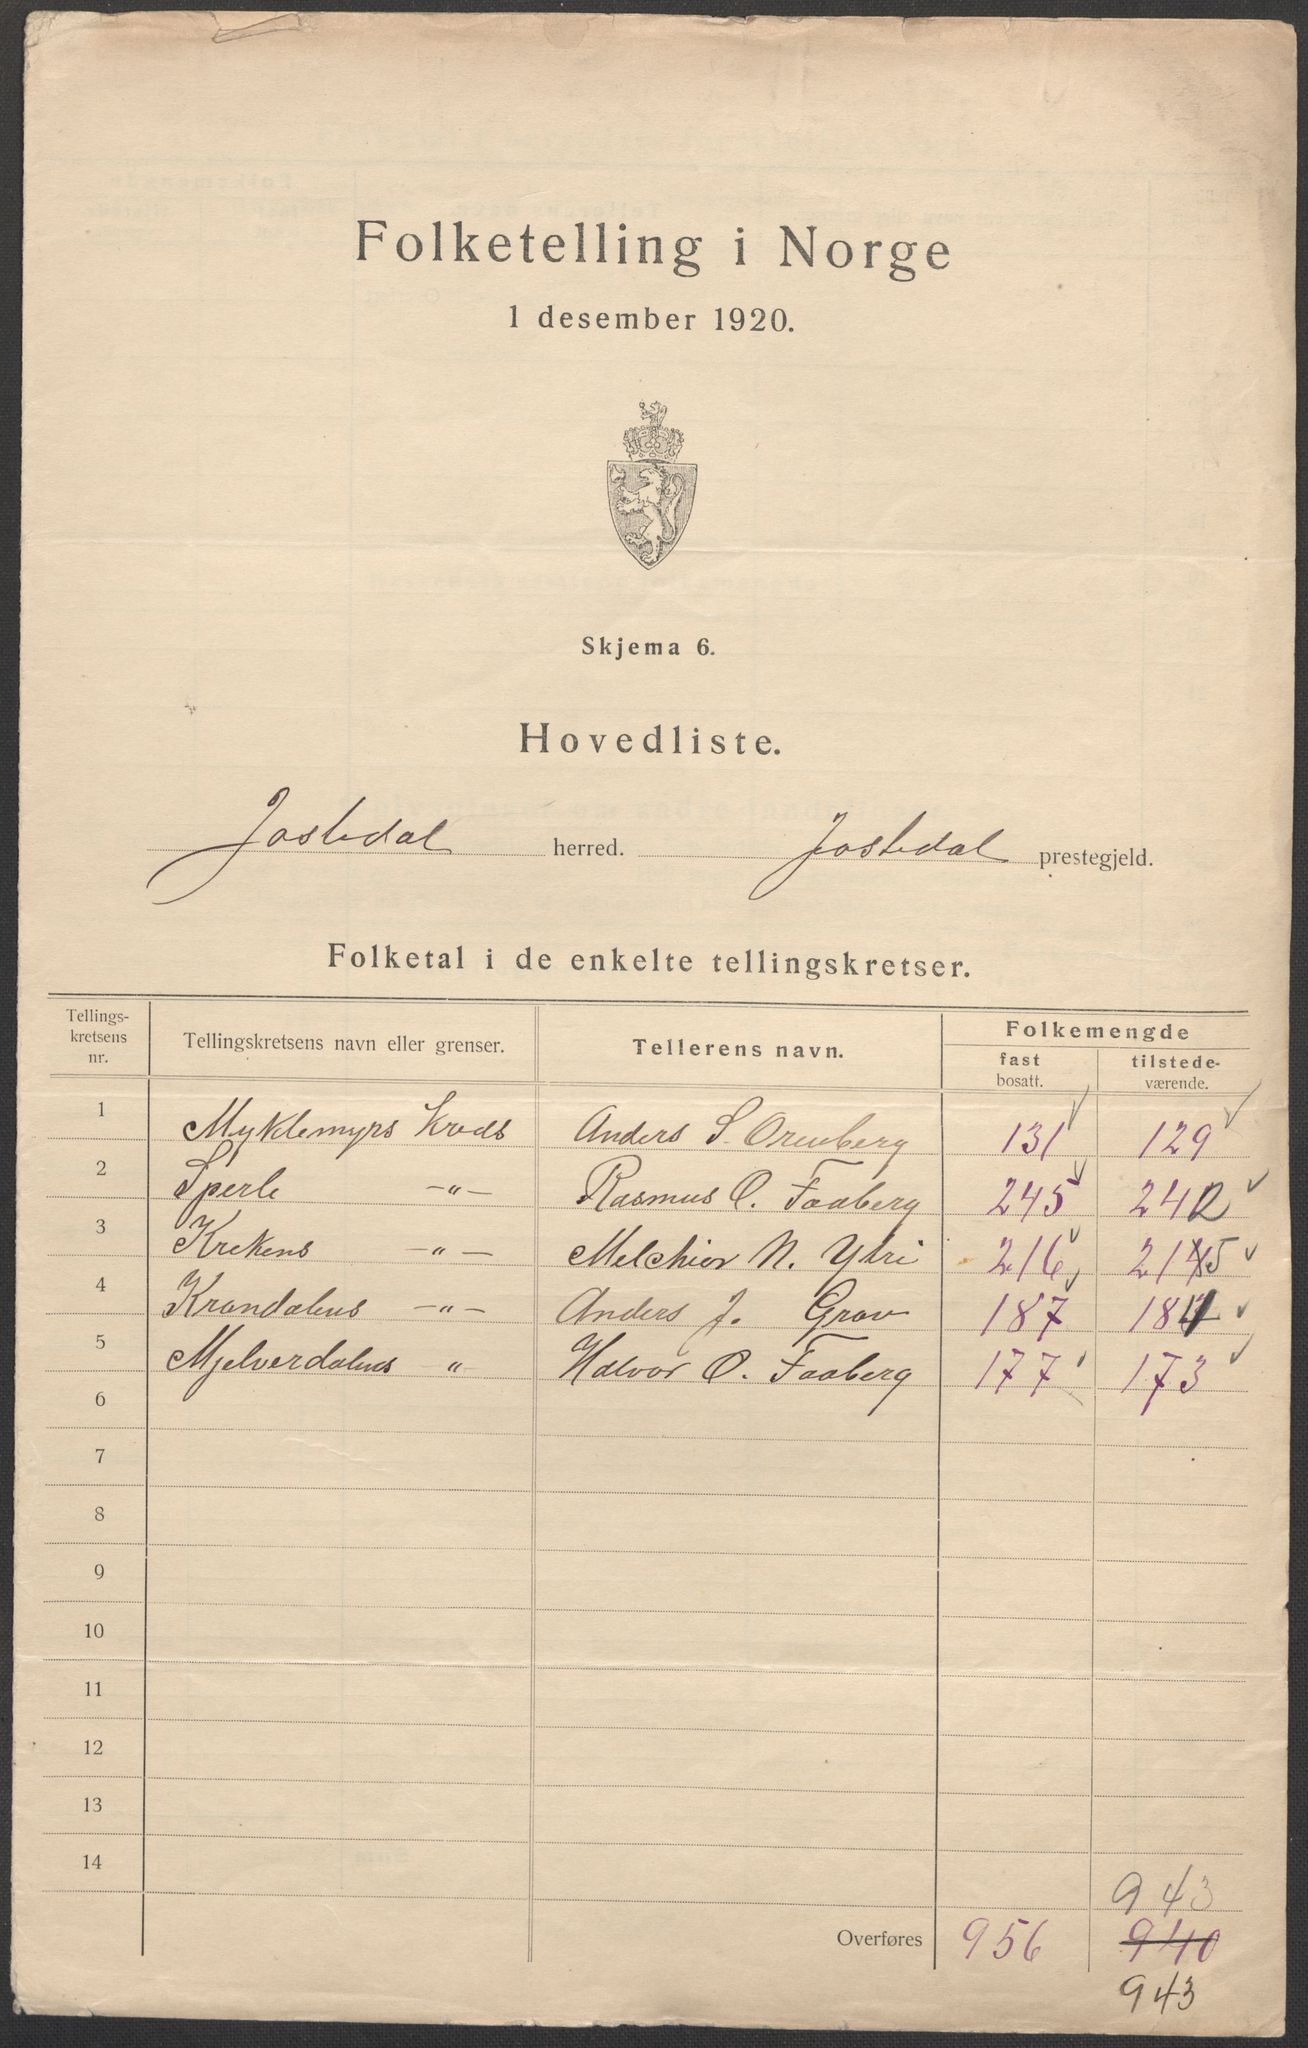 Folketelling i Norge
1 desember 1920.
Skjema 6.
Hovedliste.
Jostedal herred. Jostedal prestegjeld.
Folketal i de enkelte tellingskretser.
Tellings-kretsens nr. Tellingskretsens navn eller grenser. Tellerens navn. Folkemengde
fast bosatt. tilstede-værende.
1 Myklemyrs Krets Anders S. Ormberg 131 129
2 Sperle —"— Rasmus O. Faaberg 245 242
3 Krekens —"— Melchior N. Ytri 216 215
4 Krondalens —"— Anders J. Grov 187 184
5 Mjelverdalens " Halvor O. Faaberg 177 173
6
7
8
9
10
11
12
13
14
943
Overføres 956 940
943